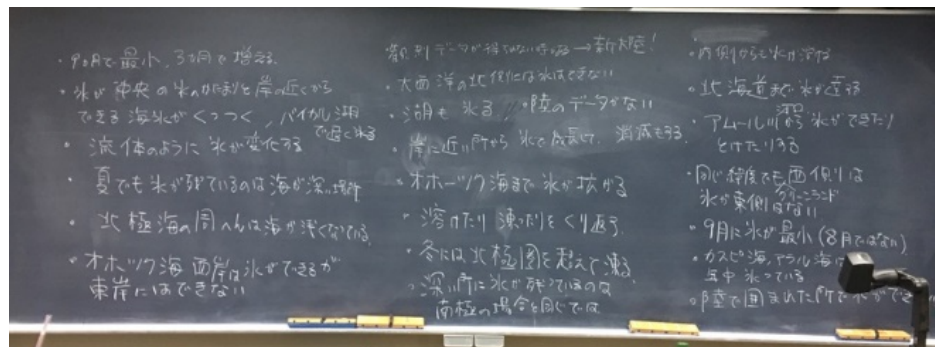 ・9月で最小、3月で増える
・氷が中央の氷のかたまりと岸の近くから
できる海氷がくっつく, バイカル湖
で遅く氷る
・流体のように氷が変化する
・夏でも氷が残っているのは海が深い場所
・北極海の周へんは海が浅くなっている
・オホーツク海西岸は氷ができるが
東岸にはできない
観測データが得られない時がある→新大陸!
・大西洋の北側には氷はできない
・湖も氷る // ・陸のデータがない
・岸に近い所から氷て成長して、消滅もする
・オホーツク海まで氷が拡がる
・溶けたり凍ったりをくり返す
・冬には北極圏を超えて凍る
・深い所に氷が残っているのは
南極の場合と同じでは
・内側からも氷が溶ける
・北海道まで氷が達する
・アムール川河口から氷ができたり
とけたりする
・同じ緯度でも西側は
氷が東側はない
・9月に氷が最小(8月ではない)
・カスピ海、アラル海は
年中氷っている
・陸で囲まれた所で氷ができ